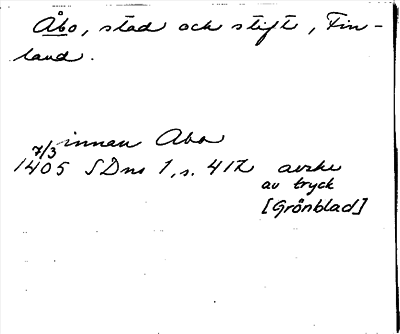 Åbo, stad och stift, Fin-
land.
innan Abo
7/3
1405 SDns 1, s. 412 avskr
av tryck
[Grönblad]